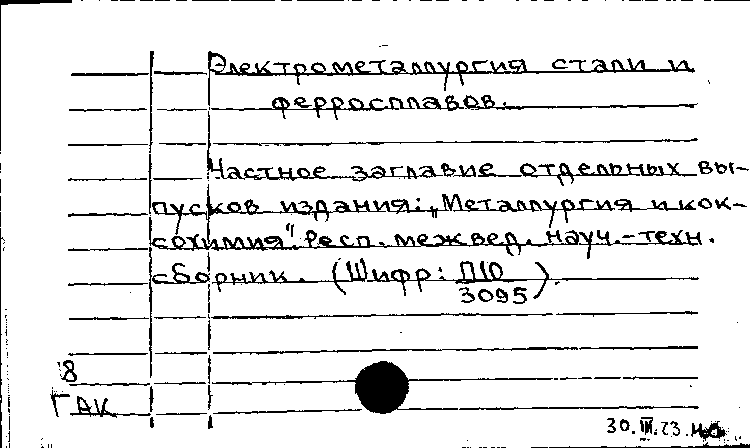 Электрометаллургия стали и
ферросплавов.
Частное заглавие отдельных вы-
пусков издания: „Металлургия и кок-
сохимия". Респ. межвед. науч.-техн.
сборник. (Шифр: П10/3095).
8
ГАК
30.III.73.